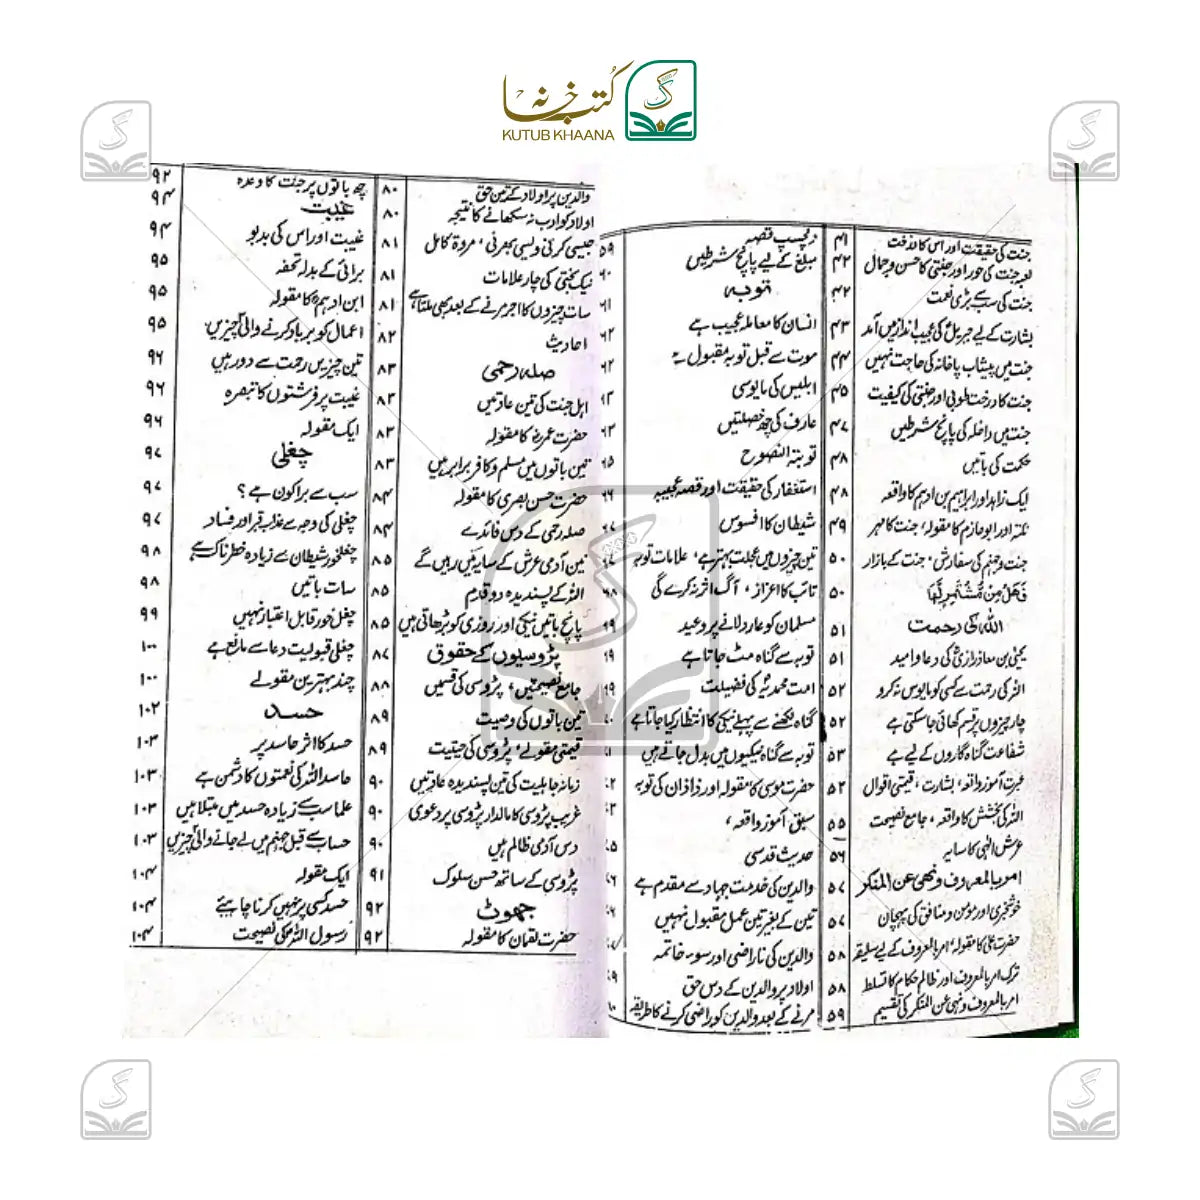 کتب خانہ
KUTUB KHAANA
جنت کی حقیقت اور اس کا درخت ۴۱
بعد جنت کی حور اور جنتی کا حسن و جمال ۴۲
جنت کی سب سے بڑی نعمت ۴۲
بشارت کے لیے جبریلؑ کی عجیب انداز میں آمد ۴۳
جنت میں پیشاب پاخانہ کی حاجت نہیں ۴۴
جنت کا درخت طوبیٰ اور جنتی کی کیفیت ۴۵
جنت میں داخلہ کی پانچ شرطیں ۴۷
حکمت کی باتیں ۴۸
ایک زاہد اور ابراہیم بن ادہم کا واقعہ ۴۸
نکتہ اور ابو حازم کا مقولہ، جنت کا مہر ۴۹
جنت و جہنم کی سفارش، جنت کے بازار ۵۰
فَهَلْ مِنْ مُّشْتَمِرٍ لَّهَا ۵۰
اللہ کی رحمت ۵۱
یحییٰ بن معاذ رازیؒ کی دعا و امید ۵۱
اللہ کی رحمت سے کسی کو مایوس نہ کرو ۵۲
چار چیزوں پر قسم کھائی جا سکتی ہے ۵۲
شفاعت گناہ گاروں کے لیے ہے ۵۳
عبرت آموز واقعہ، بشارت، قیمتی اقوال ۵۲
اللہ کی بخشش کا واقعہ، جامع نصیحت ۵۵
عرش الٰہی کا سایہ ۵۶
امر بالمعروف و نھی عن المنکر ۵۷
خوشخبری اور مومن و منافق کی پہچان ۵۷
حضرت علی کا مقولہ، امر بالمعروف کے لیے سلیقہ ۵۸
ترک امر بالمعروف اور ظالم حکام کا تسلط ۵۸
امر بالمعروف و نہی عن المنکر کی تقسیم ۵۹
دلچسپ قصہ ۵۹
مبلغ کے لیے پانچ شرطیں
توبہ ۶۱
انسان کا معاملہ عجیب ہے ۶۲
موت سے قبل توبہ مقبول ہے ۶۲
ابلیس کی مایوسی
عارف کی چھ خصلتیں
توبۃ النصوح
استغفار کی حقیقت اور قصہ عجیبہ
شیطان کا افسوس
تین چیزوں میں عجلت بہتر ہے، علامات توبہ
تائب کا اعزاز، آگ اثر نہ کرے گی
مسلمان کو عار دلانے پر وعید
توبہ سے گناہ مٹ جاتا ہے
امت محمدیہؐ کی فضیلت
گناہ لکھنے سے پہلے نیکی کا انتظار کیا جاتا ہے
توبہ سے گناہ نیکیوں میں بدل جاتے ہیں
حضرت موسیٰ کا مقولہ اور زاذان کی توبہ
سبق آموز واقعہ،
حدیث قدسی
والدین کی خدمت جہاد سے مقدم ہے
تین کے بغیر تین عمل مقبول نہیں
والدین کی ناراضی اور سوء خاتمہ
اولاد پر والدین کے دس حق
مرنے کے بعد والدین کو راضی کرنے کا طریقہ
والدین پر اولاد کے تین حق ۸۰
اولاد کو ادب نہ سکھانے کا نتیجہ ۸۰
جیسی کرنی ویسی بھرنی، مروۃ کامل ۸۱
نیک بختی کی چار علامات ۸۱
سات چیزوں کا اجر مرنے کے بعد بھی ملتا ہے ۸۱
احادیث ۸۲
صلہ رحمی ۸۳
اہل جنت کی تین عادتیں ۸۳
حضرت عمرؓ کا مقولہ ۸۳
تین باتوں میں مسلم و کافر برابر ہیں ۸۳
حضرت حسن بصری کا مقولہ ۸۴
صلہ رحمی کے دس فائدے ۸۴
تین آدمی عرش کے سایہ میں رہیں گے ۸۵
اللہ کے پسندیدہ دو قدم ۸۵
پانچ باتیں نیکی اور روزی کو بڑھاتی ہیں ۸۵
پڑوسیوں کے حقوق ۸۷
جامع نصیحتیں، پڑوسی کی قسمیں ۸۸
تین باتوں کی وصیت ۸۹
قیمتی مقولے، پڑوسی کی حیثیت ۸۹
زمانہ جاہلیت کی تین پسندیدہ عادتیں ۹۰
غریب پڑوسی کا مالدار پڑوسی پر دعوی ۹۰
دس آدمی ظالم ہیں ۹۰
پڑوسی کے ساتھ حسن سلوک ۹۱
جھوٹ ۹۲
حضرت لقمان کا مقولہ ۹۲
چھ باتوں پر جنت کا وعدہ ۹۲
غیبت ۹۴
غیبت اور اس کی بدبو ۹۴
برائی کے بدلہ تحفہ ۹۵
ابن ادہمؒ کا مقولہ ۹۵
اعمال کو برباد کرنے والی چیزیں ۹۵
تین چیزیں رحمت سے دور ہیں ۹۶
غیبت پر فرشتوں کا تبصرہ ۹۶
ایک مقولہ ۹۶
چغلی ۹۷
سب سے برا کون ہے؟ ۹۷
چغلی کی وجہ سے عذاب قبر اور فساد ۹۷
چغلخور شیطان سے زیادہ خطرناک ہے ۹۸
سات باتیں ۹۸
چغل خور قابل اعتبار نہیں ۹۹
چغلی قبولیت دعا سے مانع ہے ۱۰۰
چند بہترین مقولے ۱۰۰
حسد ۱۰۲
حسد کا اثر حاسد پر ۱۰۳
حاسد اللہ کی نعمتوں کا دشمن ہے ۱۰۳
علما سب سے زیادہ حسد میں مبتلا ہیں ۱۰۳
حساب سے قبل جہنم میں لے جانے والی چیزیں ۱۰۳
ایک مقولہ ۱۰۴
حسد کسی پر نہیں کرنا چاہیئے ۱۰۴
رسول اللہؐ کی نصیحت ۱۰۴